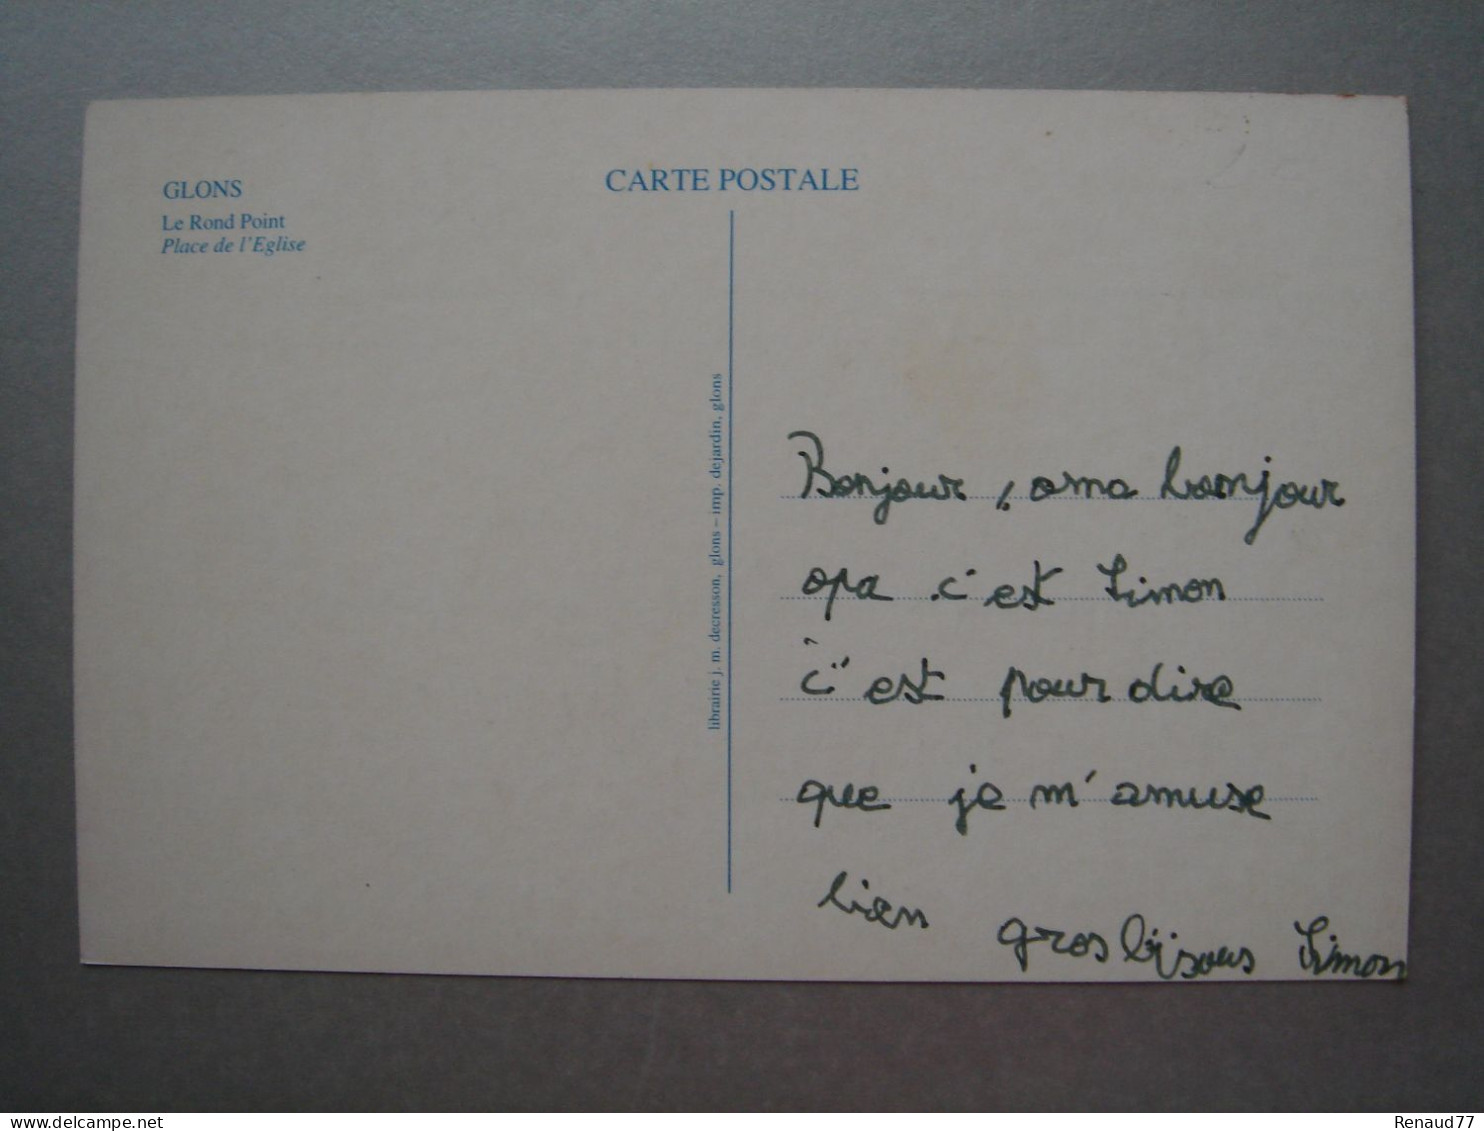 GLONS
Le Rond Point
Place de l'Eglise
CARTE POSTALE
librairie j. m. decresson, glons – imp. dejardin, glons
Bonjour, oma bonjour
opa c'est Simon
c'est pour dire
que je m'amuse
bien gros bijsous Simon
delcampe.net
Renaud77